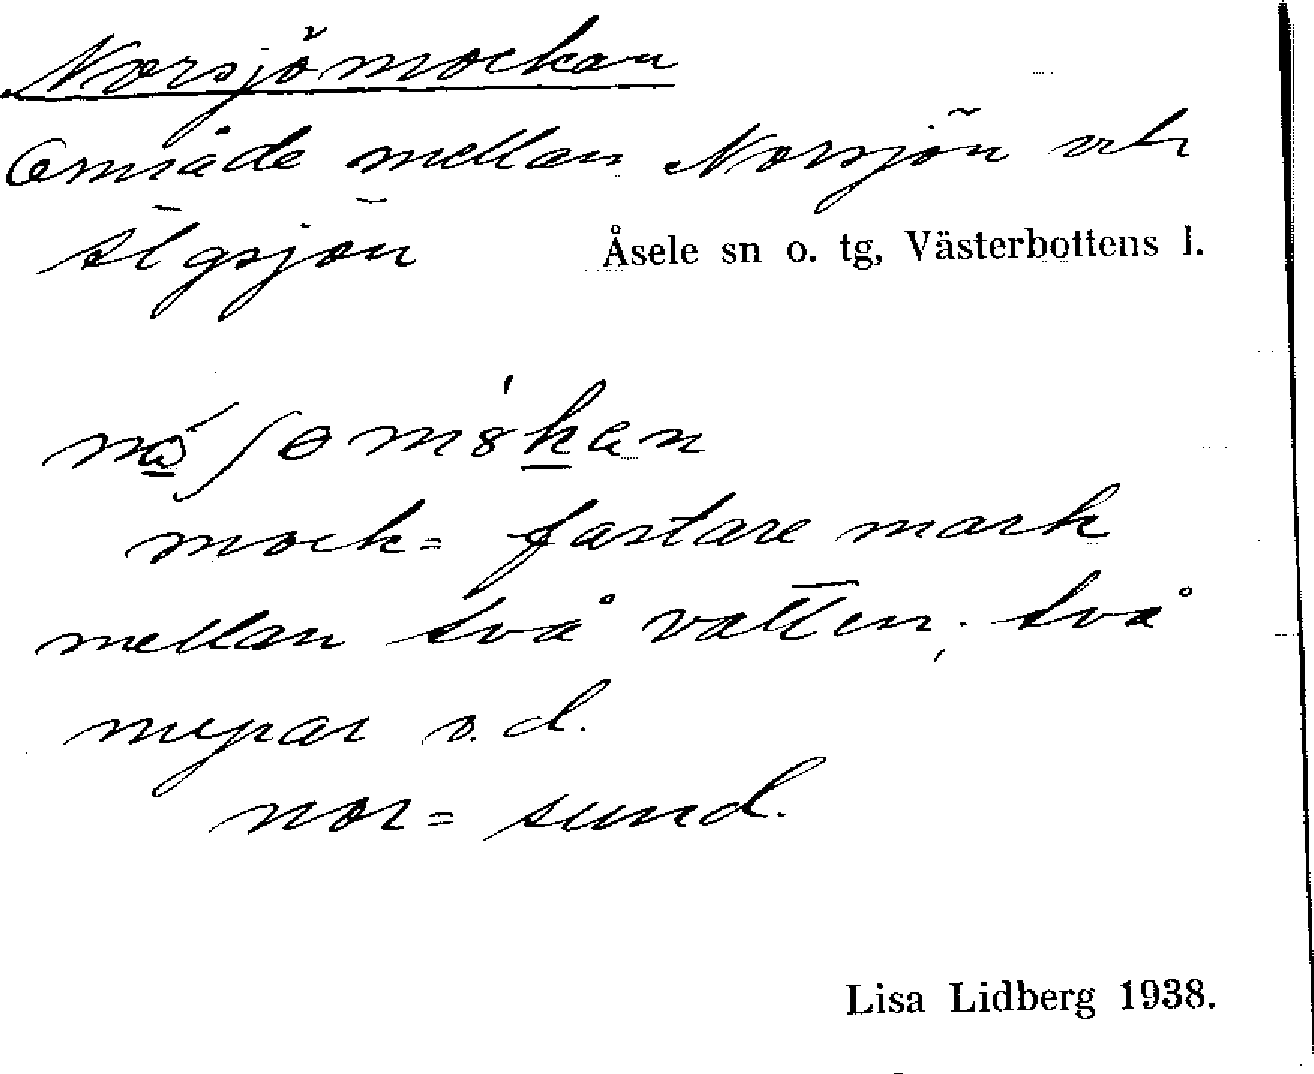 Norsjömockan
Område mellan Norsjön och
Älgsjön
Åsele sn o. tg, Västerbottens l.
mock = fastare mark
mellan två vatten, två
myrar o.d.
nor = sund.
Lisa Lidberg 1938.